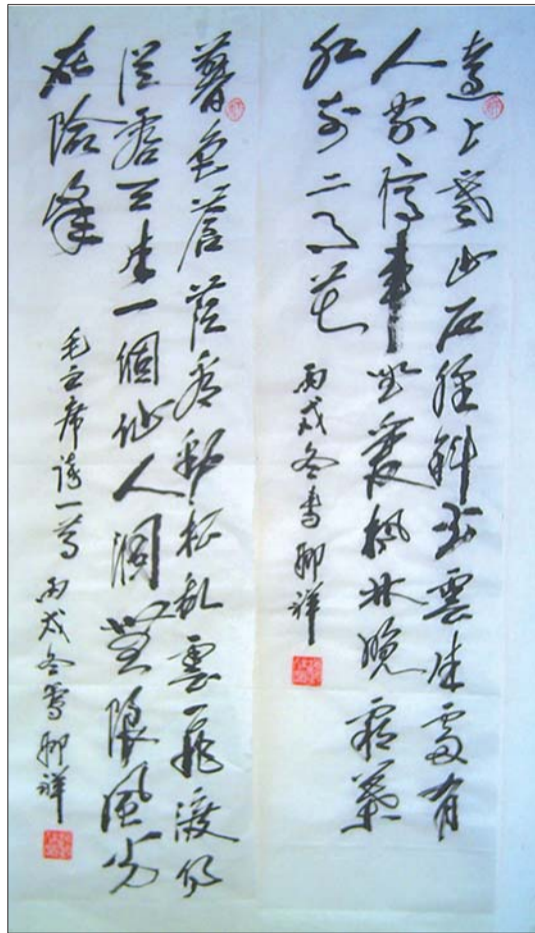 遠上寒山石徑斜白雲生處有
人家停車坐愛楓林晚霜葉
紅於二月花
丙戌冬書 祥
暮色蒼茫看勁松亂雲飛渡仍
從容天生一個仙人洞無限風光
在險峰
毛主席詩一首 丙戌冬書 祥